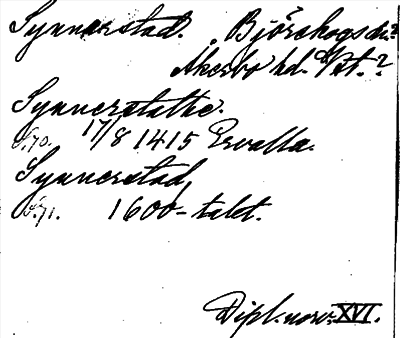 Synnerstad. Björskogs sn?
Åkerbo hd. Vstm.?
Synnerstathe.
S. 70. 17/8 1415 Ervalla.
Synnerstad,
S. 71. 1600-talet.
Dipl. norv. XVI.